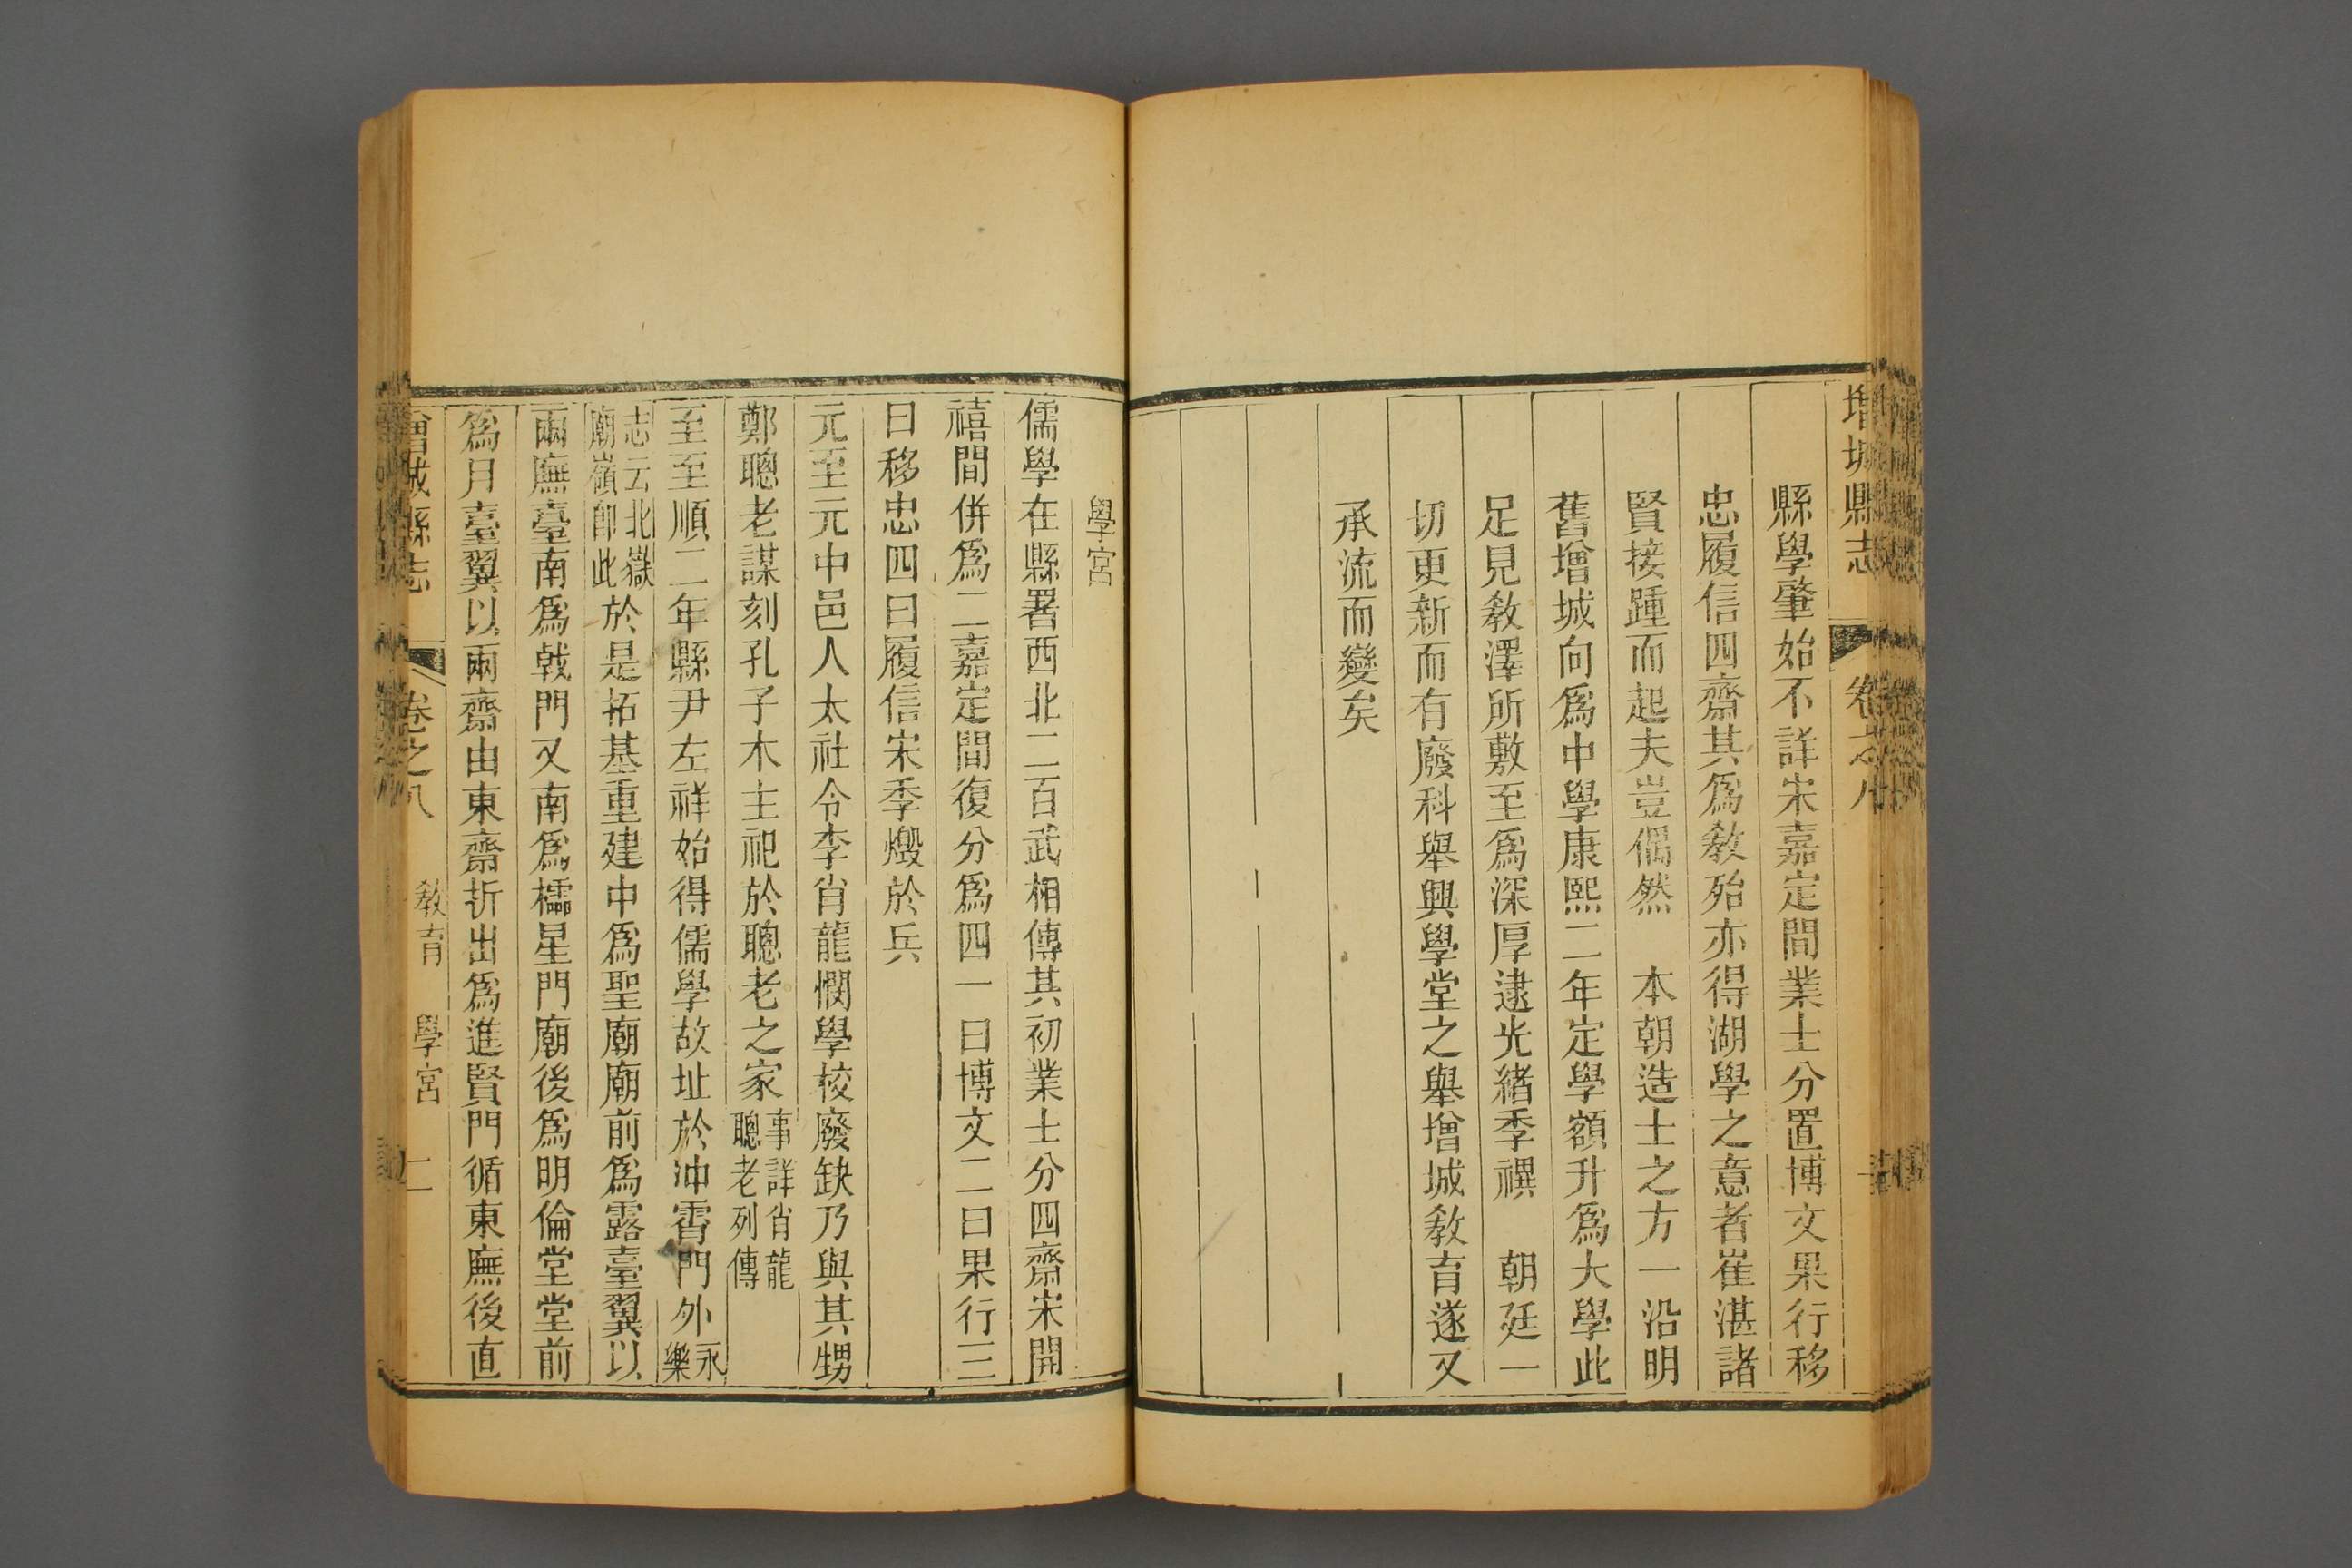 增城縣志 卷之八
縣學肇始不詳宋嘉定間業士分置博文果行移
忠履信四齋其爲敎殆亦得湖學之意者崔湛諸
賢接踵而起夫豈偶然 本朝造士之方一沿明
舊增城向爲中學康熙二年定學額升爲大學此
足見敎澤所敷至爲深厚逮光緒季禩 朝廷一
切更新而有廢科舉興學堂之舉增城敎育遂又
承流而變矣
學宮
儒學在縣署西北二百武相傳其初業士分四齋宋開
禧間併爲二嘉定間復分爲四一曰博文二曰果行三
曰移忠四曰履信宋季燬於兵
元至元中邑人太社令李肖龍憫學校廢缺乃與其甥
鄭聰老謀刻孔子木主祀於聰老之家事詳肖龍聰老列傳
至至順二年縣尹左祥始得儒學故址於冲霄門外永樂
志云北嶽廟嶺卽此於是拓基重建中爲聖廟廟前爲露臺翼以
兩廡臺南爲戟門又南爲櫺星門廟後爲明倫堂堂前
爲月臺翼以兩齋由東齋折出爲進賢門循東廡後直
增城縣志 卷之八 敎育 學宮 二